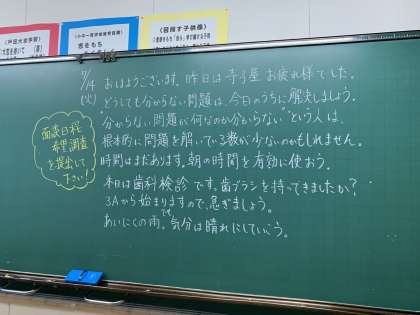 戸田大志学習
志をもち
目指す子供像
7/14
(火)
おはようございます。昨日は寺子屋お疲れ様でした。
どうしても分からない問題は、今日のうちに解決しましょう。
"分からない問題が何なのか分からない"という人は、
根本的に問題を解いている数が少ないのかもしれません。
時間はまだあります。朝の時間を有効に使おう。
本日は歯科検診です。歯ブラシを持ってきましたか？
3Aから始まりますので、急ぎましょう。
あいにくの雨。でも気分は晴れにしていこう。
面談日程
希望調査
を提出して
下さい！